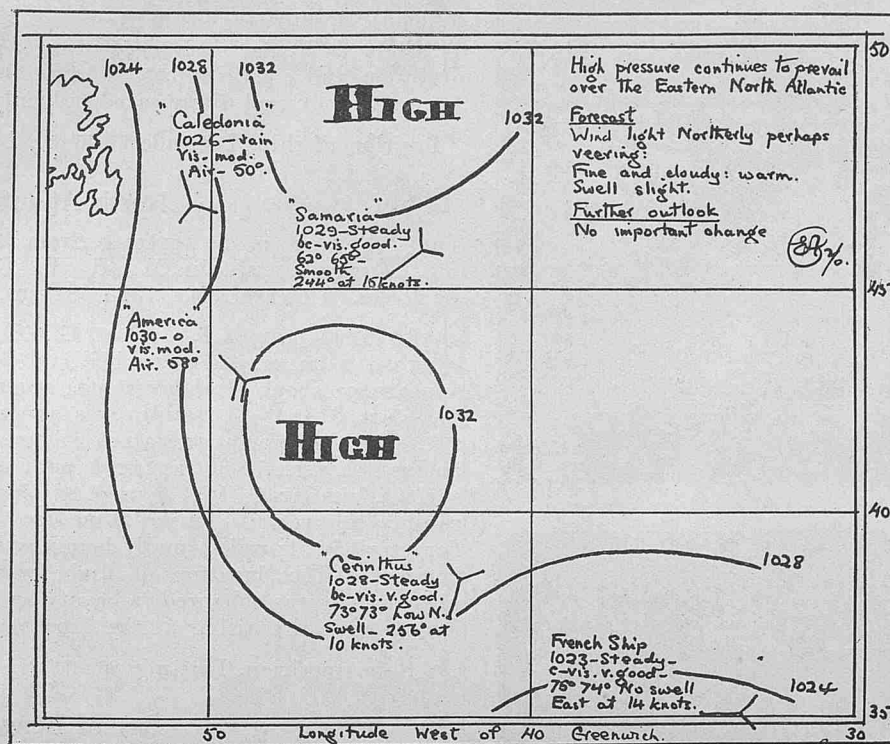 1024 1028 1032
HIGH
1032
High pressure continues to prevail
over the Eastern North Atlantic
Forecast
Wind light Northerly perhaps
veering:
Fine and cloudy: warm.
Swell slight.
Further outlook
No important change
"Caledonia"
1026-rain
vis. mod.
Air-50°.
"Samaria"
1029-Steady
bc-vis.good.
62° 65°-
Smooth
244° at 16 knots.
"America"
1030-0
vis.mod.
Air. 58°
HIGH
1032
"Cerinthus"
1028-Steady
bc-vis.v.good.
73° 73° Low N.
Swell- 256° at
10 knots.
1028
French Ship
1023-Steady-
c-vis.v.good-
76° 74° No swell
East at 14 knots.
1024
50
45
40
35
50 Longitude West of 40 Greenwich. 30